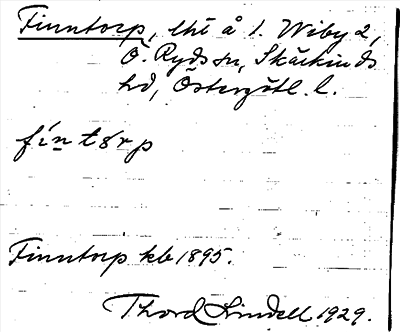 Finntorp, lht å 1. Wiby 2,
Ö. Ryds sn, Skärkinds
hd, Östergötl. l.
fìntòrp
Finntorp kb 1895.
Thord Lindell 1929.